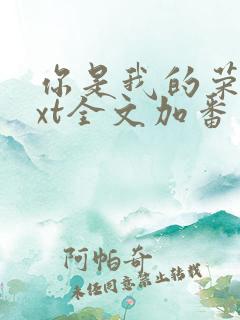 你是我的荣
xt全文加番
阿帕奇
未经同意禁止转载